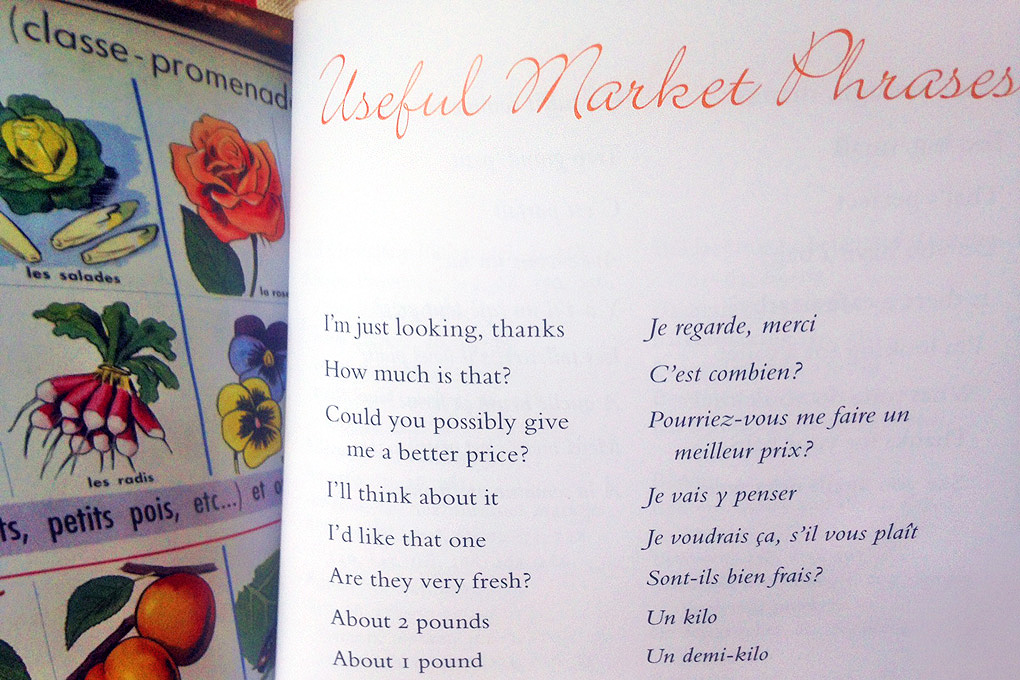 (classe-promenad
les salades
la rose
les radis
ts, petits pois, etc...) et
Useful Market Phrases
I'm just looking, thanks
Je regarde, merci
How much is that?
C'est combien?
Could you possibly give
me a better price?
Pourriez-vous me faire un
meilleur prix?
I'll think about it
Je vais y penser
I'd like that one
Je voudrais ça, s'il vous plaît
Are they very fresh?
Sont-ils bien frais?
About 2 pounds
Un kilo
About 1 pound
Un demi-kilo